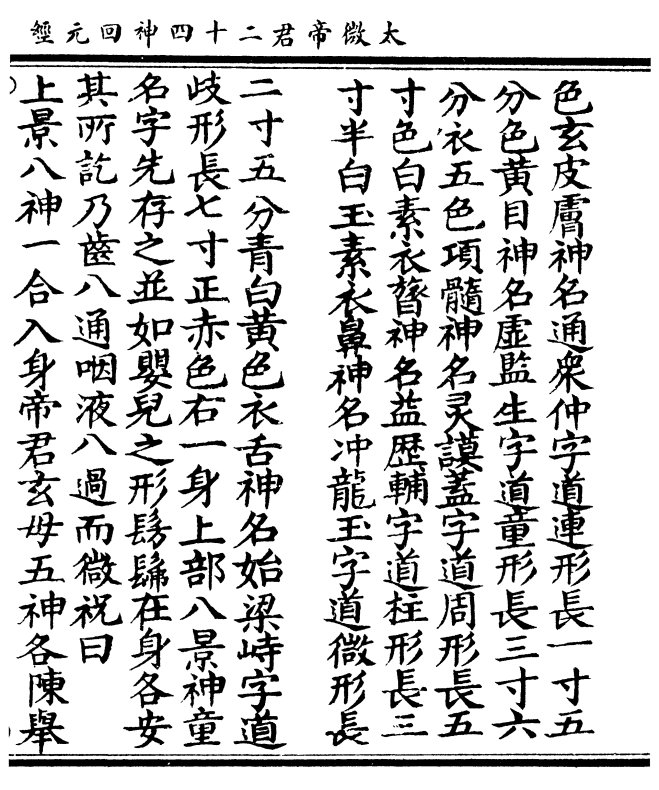 太微帝君二十四神回元經
色玄皮膚神名通衆仲字道連形長一寸五
分色黃目神名虛監生字道童形長三寸六
分衣五色項髓神名灵謨蓋字道周形長五
寸色白素衣膂神名益歴輔字道柱形長三
寸半白玉素衣鼻神名冲龍玉字道微形長
二寸五分青白黃色衣舌神名始梁峙字道
歧形長七寸正赤色右一身上部八景神童
名字先存之並如嬰兒之形髣髴在身各安
其所訖乃齒八通咽液八過而微祝曰
上景八神一合入身帝君玄母五神各陳舉